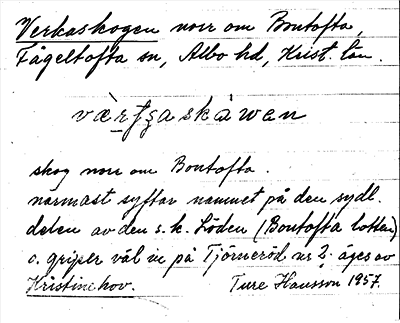 Verkaskogen norr om Bontofta,
Fågeltofta sn, Albo hd, Krist. län.
skog norr om Bontofta.
närmast syftar namnet på den sydl.
delen av den s.k. Löden (Bontofta lotten)
o. griper väl in på Tjörneröd nr 2. äges av
Kristinehov. Ture Hansson 1957.